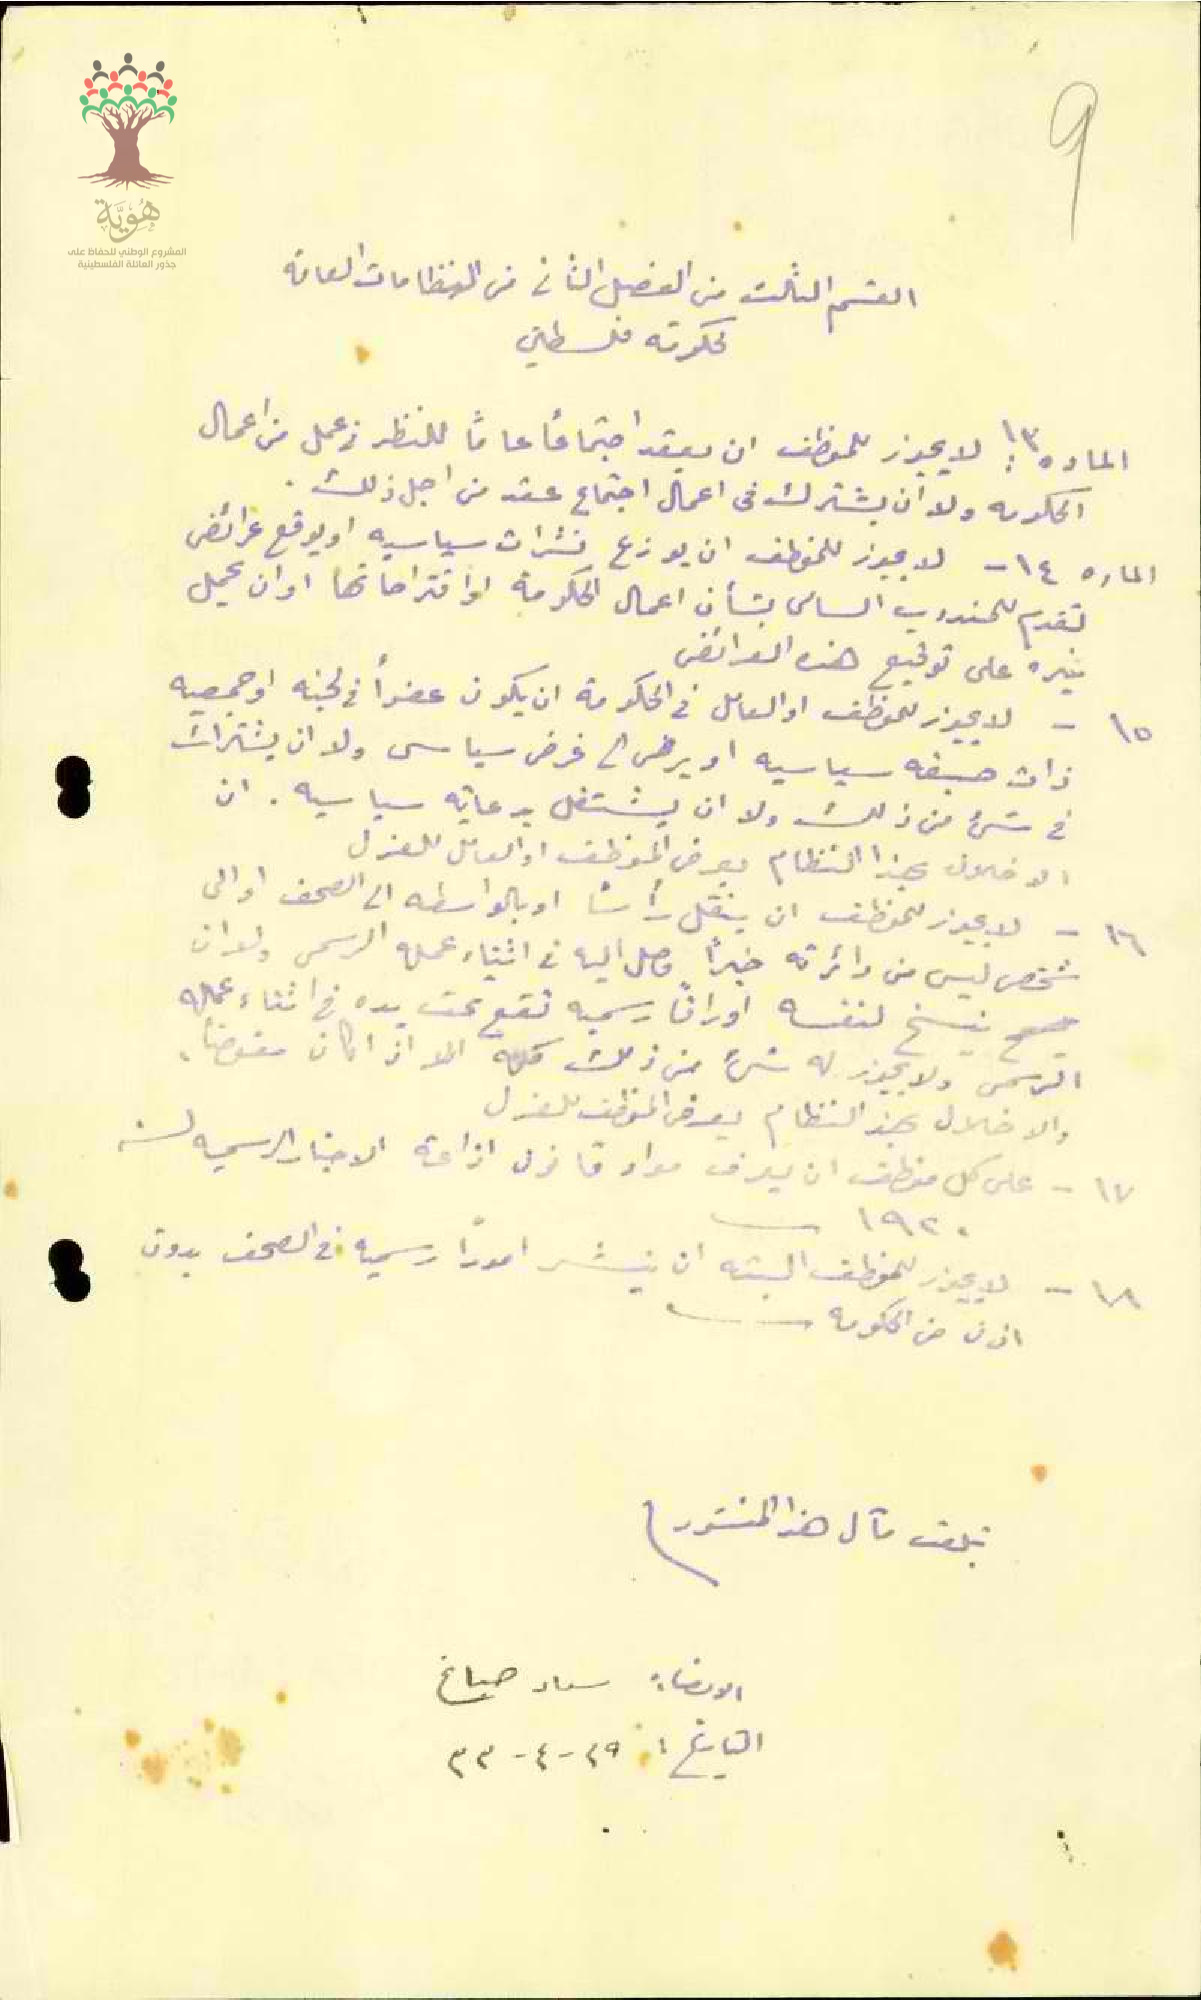 9
هُوِيَّة
المشروع الوطني للحفاظ على
جذور العائلة الفلسطينية
القسم الثالث من الفصل الثاني من النظامات العامه
لحكومة فلسطين
الماده ١٣: لا يجوز للموظف ان يعقد اجتماعًا عامًا للنظر في عمل من اعمال
الحكومه ولا ان يشترك في اعمال اجتماع عقد من اجل ذلك.
الماده ١٤ - لا يجوز للموظف ان يوزع نشرات سياسيه او يوقع عرائض
تقدم للمندوب السامي بشأن اعمال الحكومة او اقتراحاتها او ان يحمل
غيره على توقيع هذه العرائض
١٥ - لا يجوز للموظف او العامل في الحكومة ان يكون عضوأ في لجنه او جمعيه
ذات صبغه سياسيه او يرمى الى غرض سياسى ولا ان يشترك
في شئ من ذلك ولا ان يشتغل بدعايه سياسيه. ان
الاخلال بهذا النظام يعرض الموظف او العامل للعزل
١٦ - لا يجوز للموظف ان ينقل رأسًا او بالواسطه الى الصحف او الى
شخص ليس من دائرته خبرًا وصل اليه في اثناء عمله الرسمى ولا ان
ينسخ لنفسه اوراقًا رسميه تقع تحت يده في اثناء عمله
الرسمى ولا يجوز له شئ من ذلك كله الا اذا كان مفوضًا.
والاخلال بهذ النظام يعرض الموظف للعزل
١٧ - على كل موظف ان يعرف مواد قانون اذاعة الاخبار الرسميه لسنه
١٩٢٠
١٨ - لا يجوز للموظف البته ان ينشر امورًا رسميه في الصحف بدون
اذن من الحكومه
تبلغت مآل هذا المنشور
الامضاء: سعاد صباغ
التاريخ: ٢٩-٤-٣٣